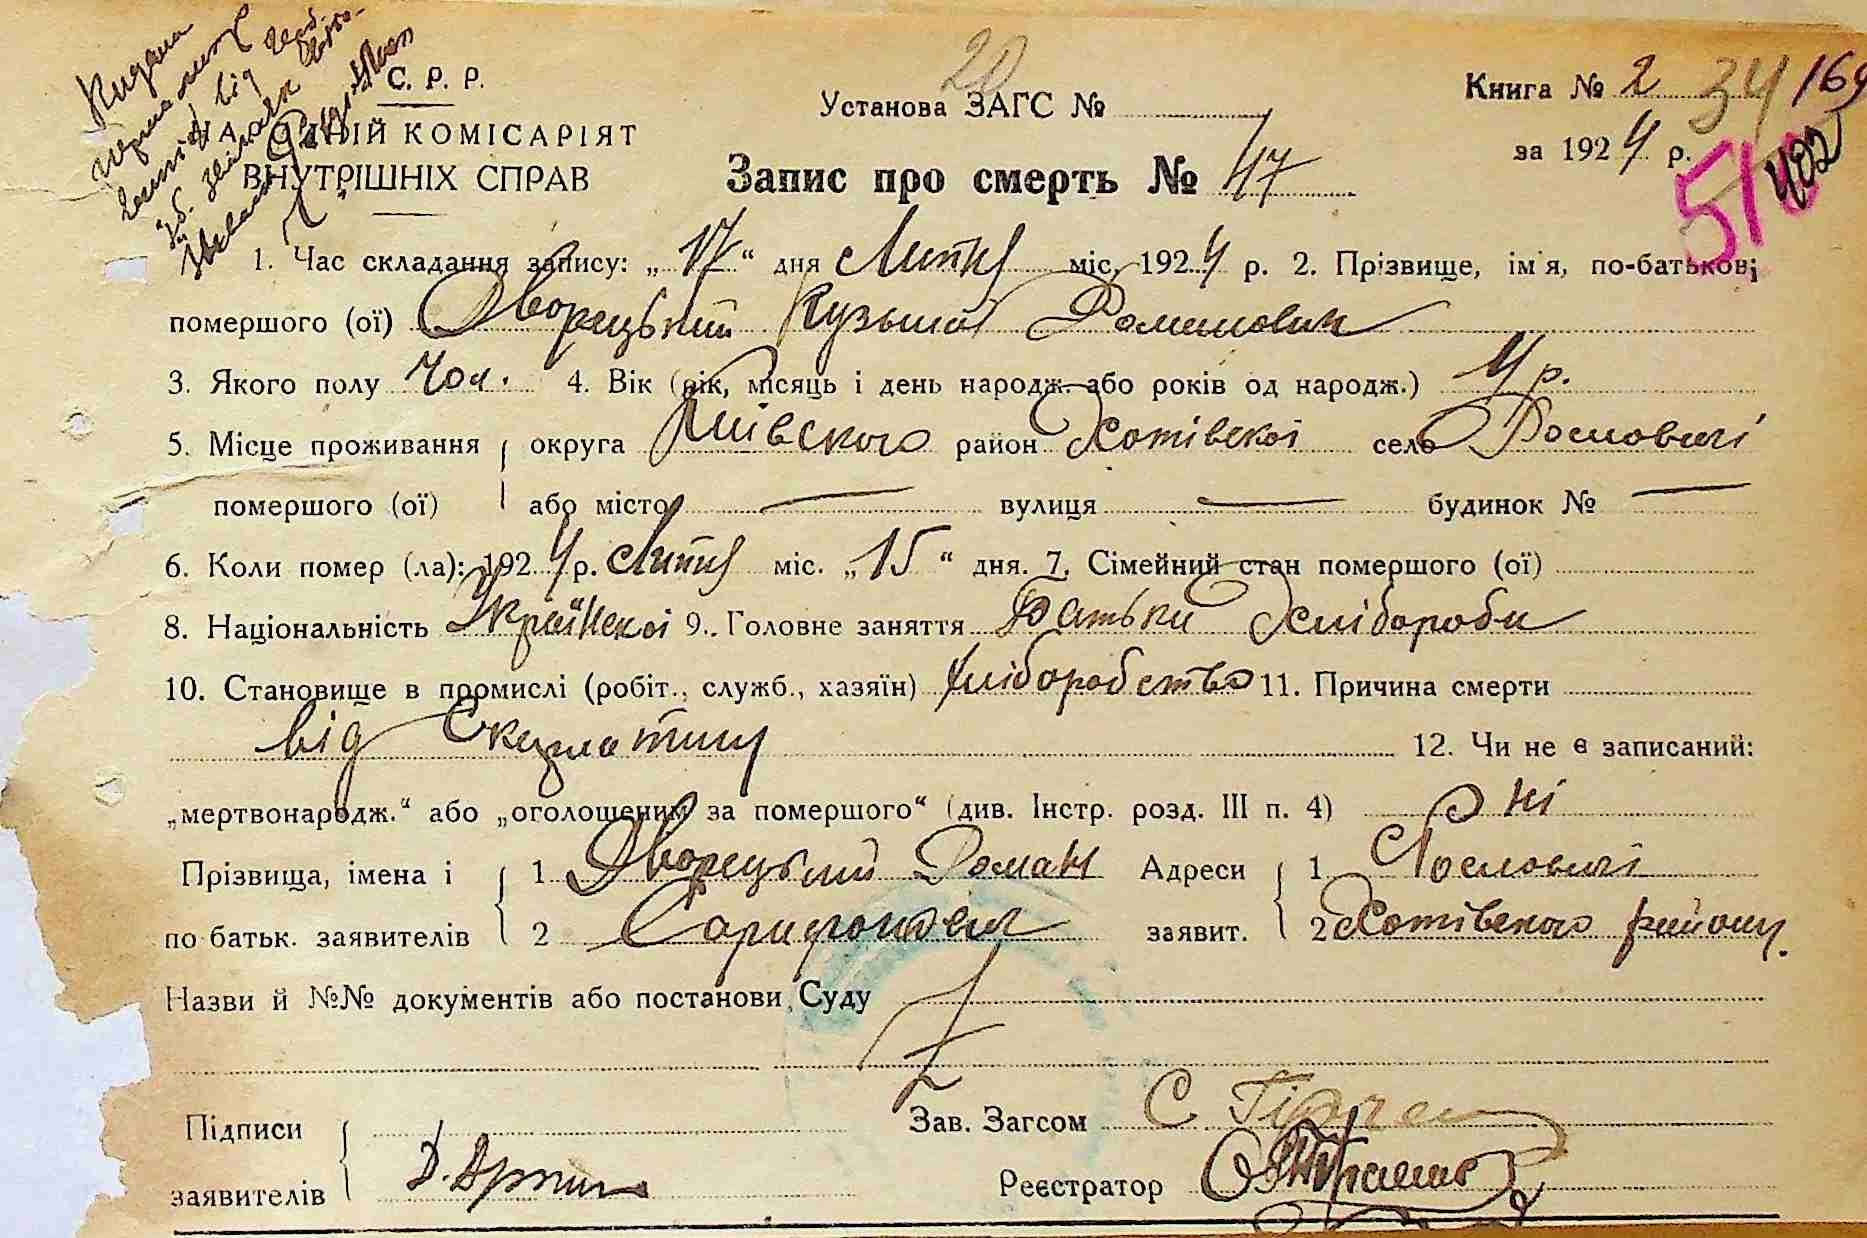 С. Р. Р.
НА НИЙ КОМІСАРІЯТ
ВНУТРІШНІХ СПРАВ
20
Установа ЗАГС №
Запис про смерть № 47
Книга № 2 34 169
за 1924 р.
51 402
1. Час складання запису: „17“ дня Липня міс. 1924 р. 2. Прізвище, ім'я, по-батькові
помершого (ої) Дворецький Кузьма Романович
3. Якого полу чол. 4. Вік (рік, місяць і день народж. або років од народж.) 4 р.
5. Місце проживання округа Київского район Хотівскої село Рословичі
помершого (ої) або місто — вулиця — будинок № —
6. Коли помер (ла): 1924 р. Липня міс. „15“ дня. 7. Сімейний стан помершого (ої)
8. Національність Українскої 9. Головне заняття Батьки Хлібороби
10. Становище в промислі (робіт., служб., хазяїн) хліборобство 11. Причина смерти
від Скарлатини 12. Чи не є записаний:
„мертвонародж.“ або „оголошеним за помершого“ (див. Інстр. розд. III п. 4) ні
Прізвища, імена і 1 Дворецький Роман Адреси 1 Рословичі
по батьк. заявителів 2 заявит. 2 Хотівского району.
Назви й №№ документів або постанови Суду
Підписи Зав. Загсом С.
заявителів Реєстратор